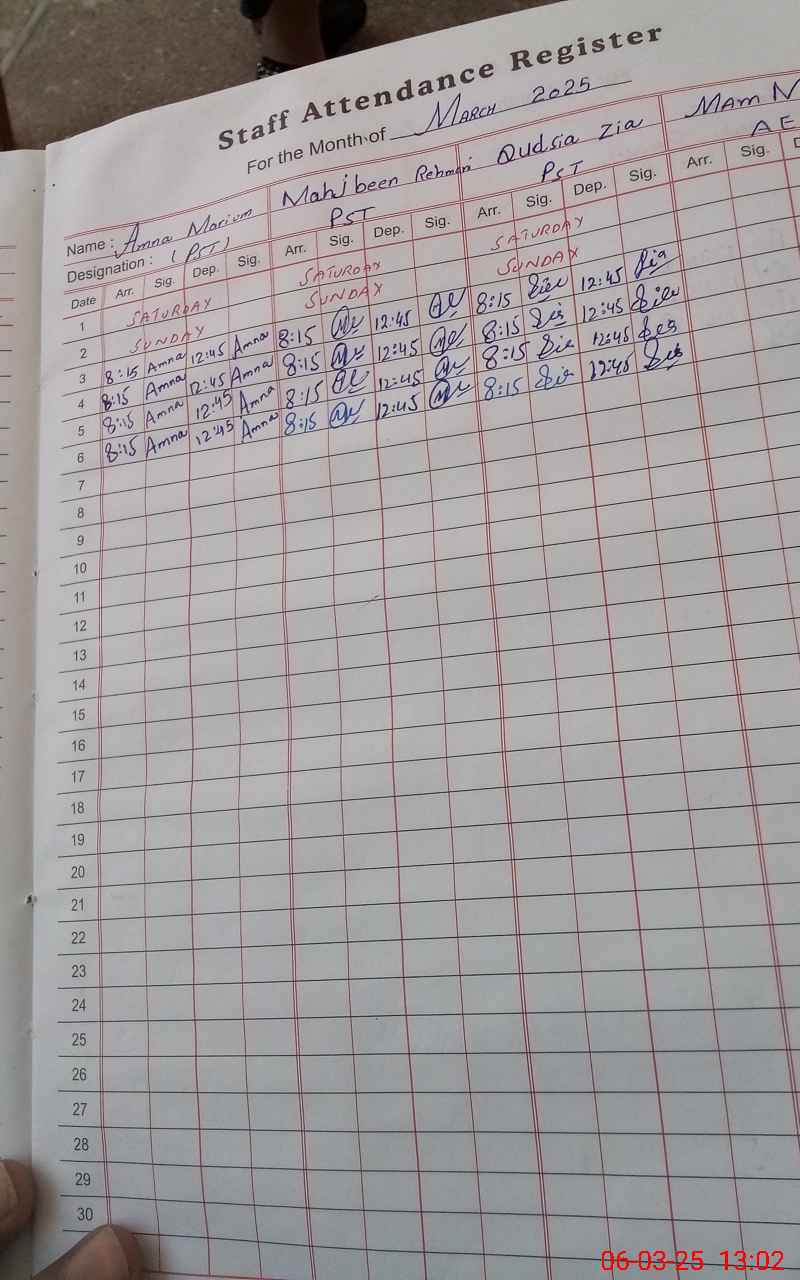 Staff Attendance Register
For the Month of MARCH 2025
Name : Amna Marium Mahjbeen Rehman Qudsia Zia MAM N
Designation : (PST) PST PST AE
Date Arr. Sig. Dep. Sig. Arr. Sig. Dep. Sig. Arr. Sig. Dep. Sig. Arr. Sig. D
1 SATURDAY SATURDAY SATURDAY
2 SUNDAY SUNDAY SUNDAY
3 8:15 Amna 12:45 Amna 8:15 12:45 8:15 Zia 12:45 Zia
4 8:15 Amna 12:45 Amna 8:15 12:45 8:15 Zia 12:45 Zia
5 8:15 Amna 12:45 Amna 8:15 12:45 8:15 Zia 12:45 Zia
6 8:15 Amna 12:45 Amna 8:15 12:45 8:15 Zia 12:45 Zia
7
8
9
10
11
12
13
14
15
16
17
18
19
20
21
22
23
24
25
26
27
28
29
30
06-03-25 13:02